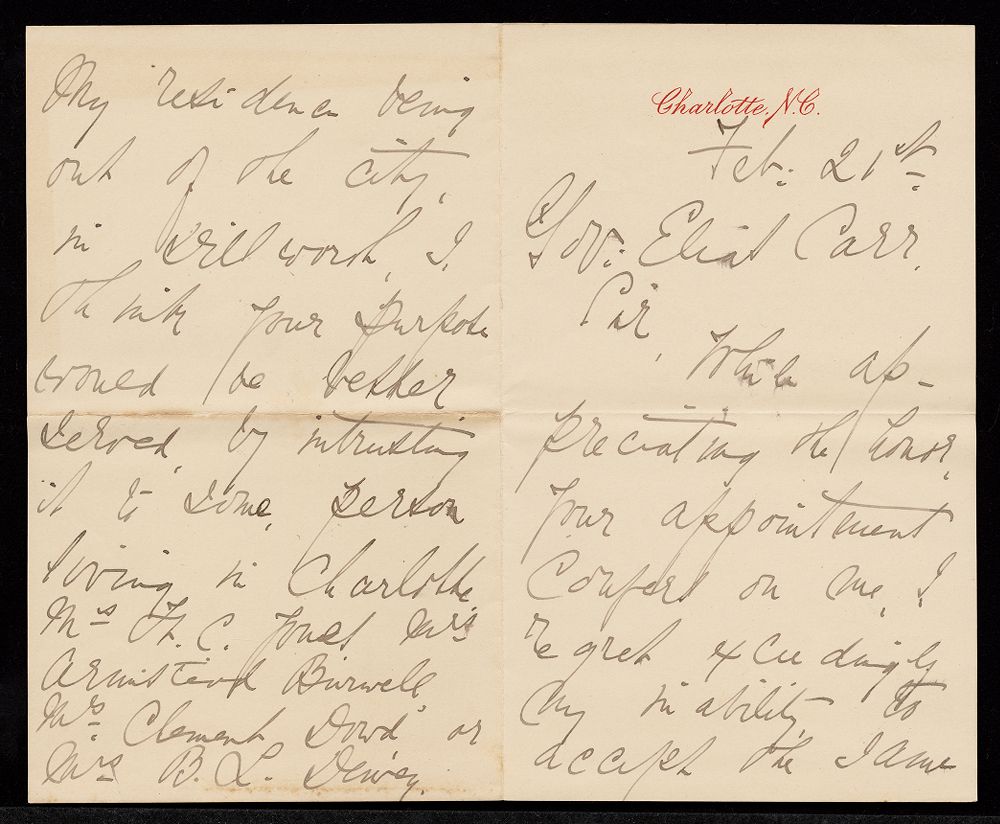 Charlotte, N.C.
Feb: 21st.
Gov: Elias Carr,
Sir,
While ap-
preciating the honor,
your appointment
confers on me, I
regret exceedingly
my inability to
accept the same
My residence being
out of the city,
in Dillworth, I.
think your purpose
would be better
served, by intrusting
it to some person
living in Charlotte,
Mrs H. C. Jones Mrs
Armistead Burwell,
Mrs. Clement Dowd or
Mrs B. L. Dewey.